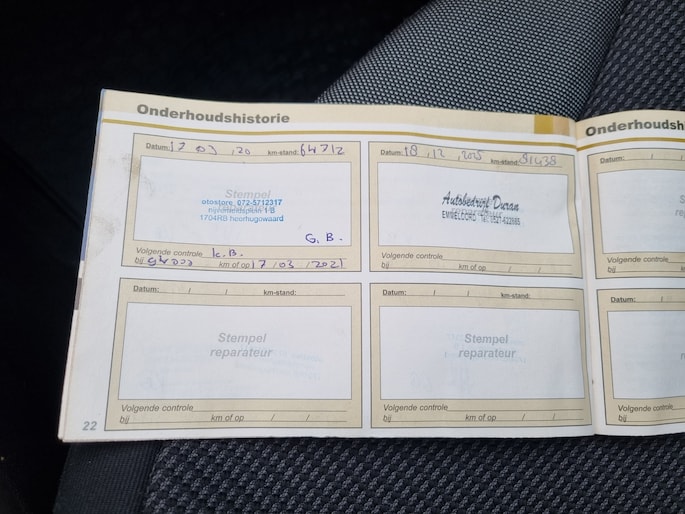 Onderhoudshistorie
Datum: 17 03 , 20 km-stand: 64712
otostore 072-5712317
1704RB heerhugowaard
G. B.
Volgende controle K.B.
bij km of op 17 / 03 / 2021
Datum: 18 , 12 , 2025 km-stand: 91438
Autobedrijf Duran
EMMELOORD Tel.
Volgende controle
bij km of op / /
Datum: / / km-stand:
Stempel
reparateur
Volgende controle
bij km of op / /
Datum: / / km-stand:
Stempel
reparateur
Volgende controle
bij km of op / /
22
Onderhoudsh
Datum: /
Ste
rep
Volgende controle
bij km
Datum: /
Volgende controle
bij km